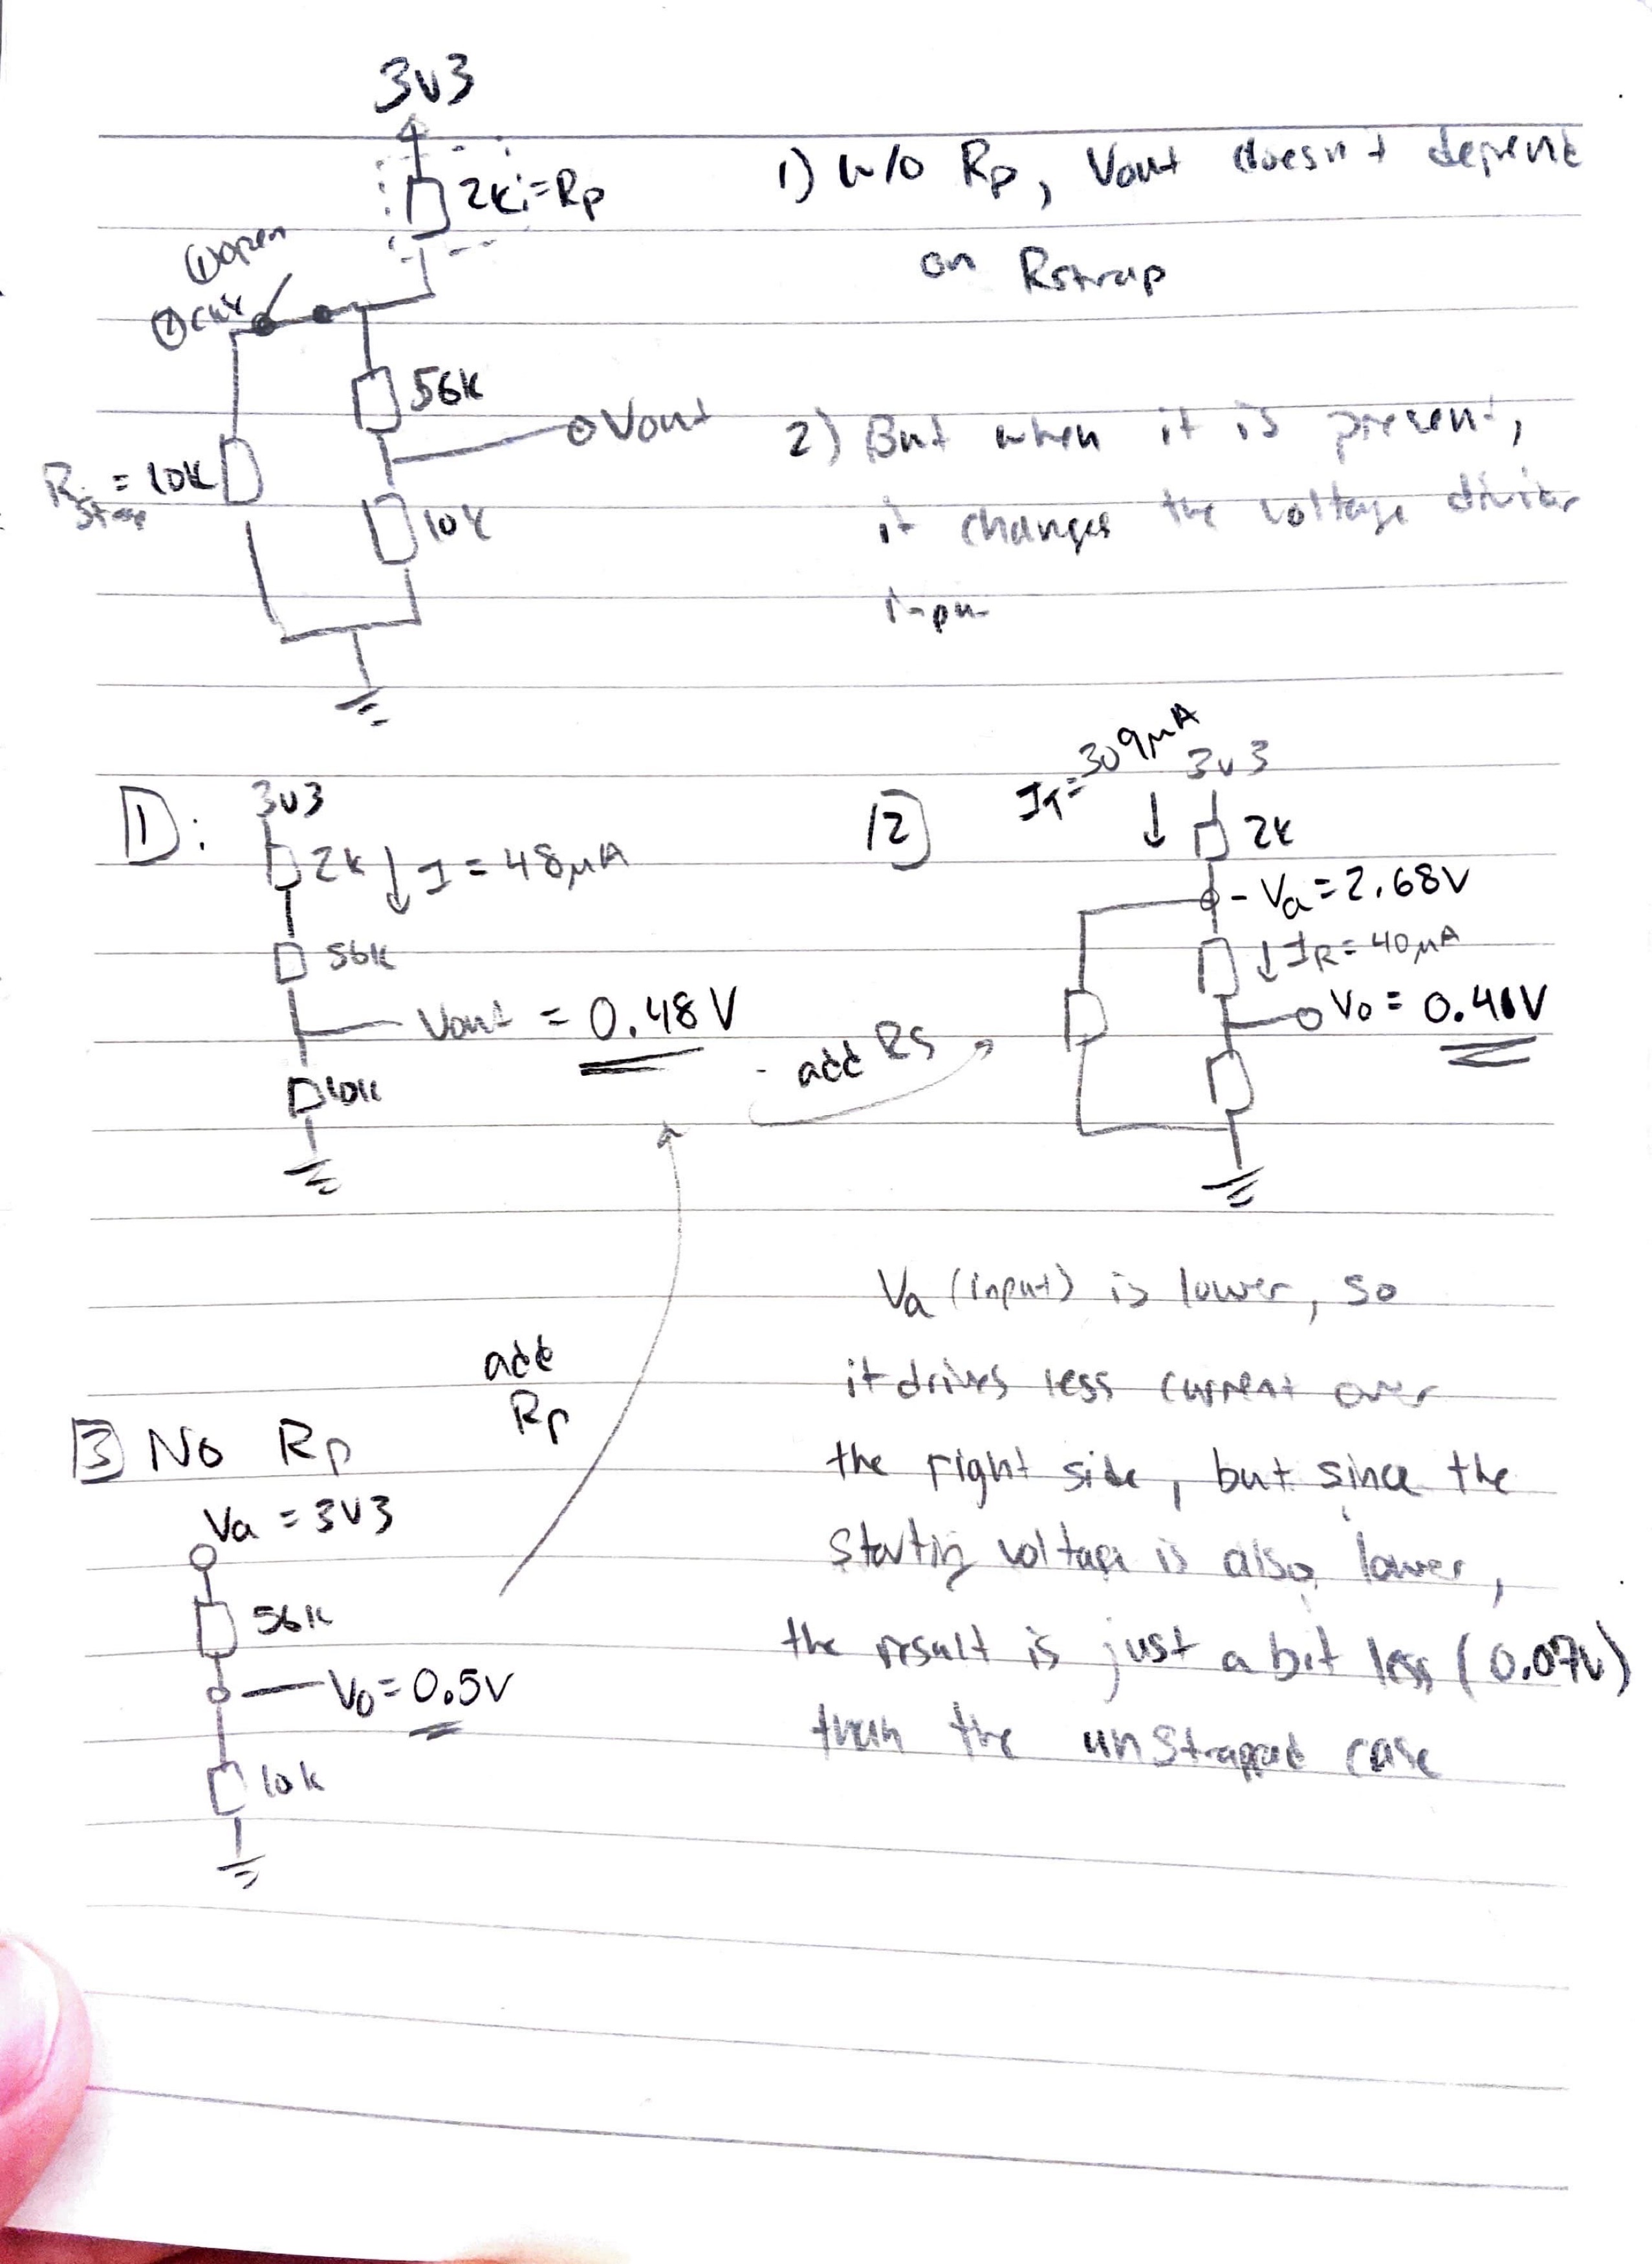 3v3
2k = Rp
① open
②
56K
Vout
R = 10K
10K
1) w/o Rp, Vout doesn't depend
on Rstrap
2) But when it is present,
it changes the voltage divider
1:
3v3
2k ↓ I = 48μA
56k
Vout = 0.48V
10k
2
IT = 309μA
3v3
2k
Va = 2.68V
↓ IR = 40μA
Vo = 0.41V
add RS
add
Rp
3 No Rp
Va = 3V3
56k
Vo = 0.5V
10k
Va (input) is lower, so
it drives less current over
the right side, but since the
starting voltage is also lower,
the result is just a bit less (0.07V)
than the unstrapped case